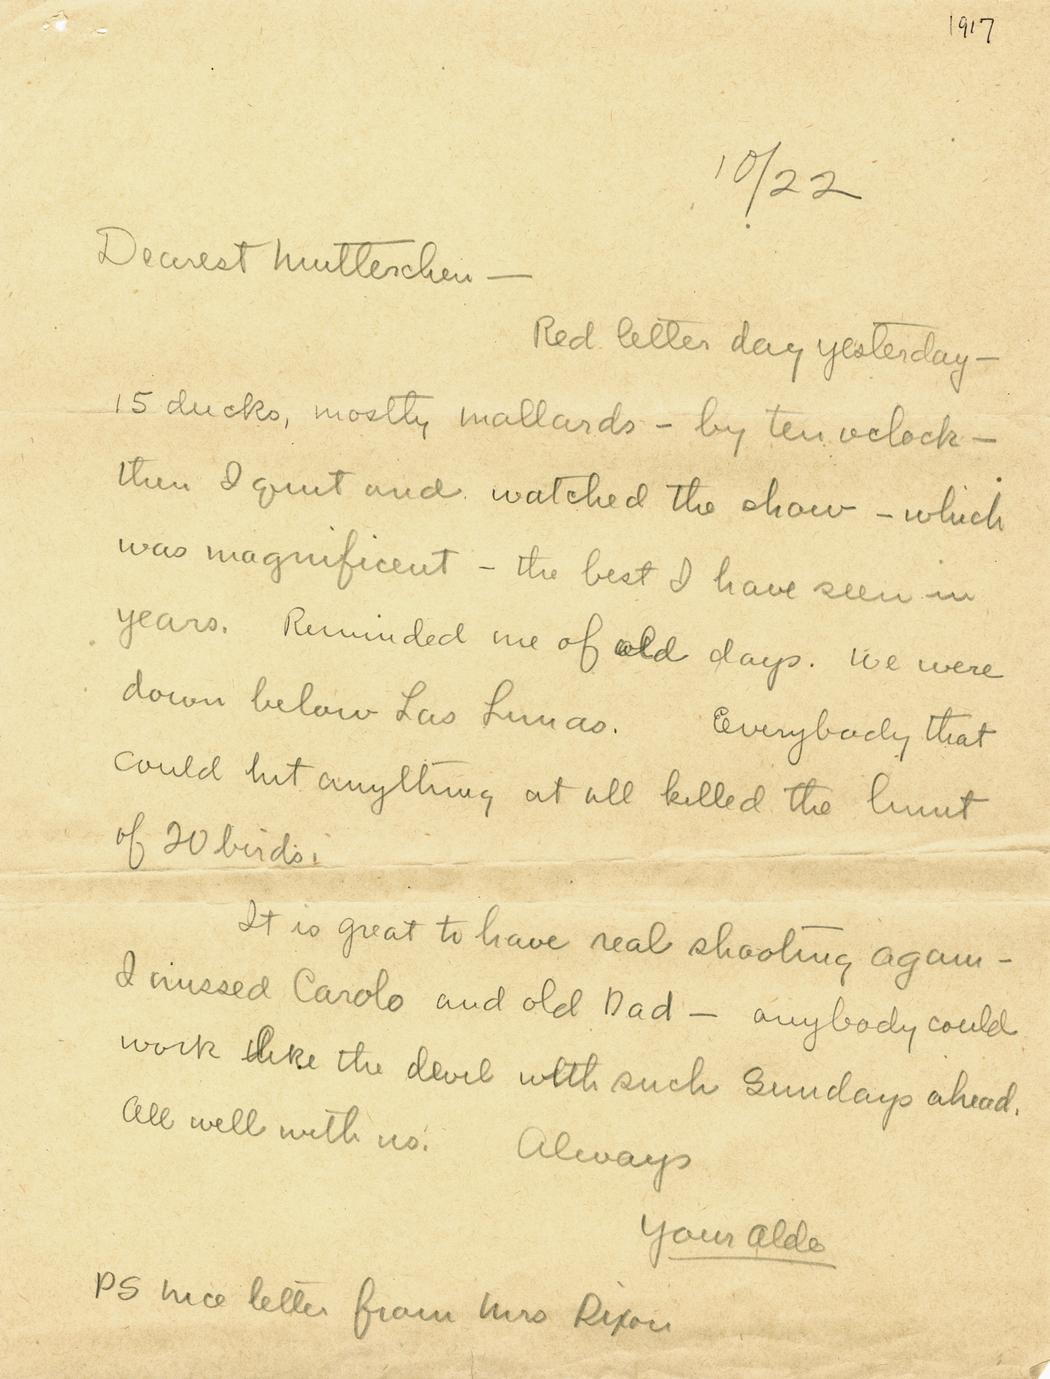 1917
10/22
Dearest Mutterchen —
Red letter day yesterday —
15 ducks, mostly mallards - by ten oclock —
then I quit and watched the show - which
was magnificent - the best I have seen in
years. Reminded me of old days. We were
down below Las Lunas. Everybody that
could hit anything at all killed the limit
of 20 birds.
It is great to have real shooting again -
I missed Carolo and old Dad — anybody could
work like the devil with such Sundays ahead.
All well with us. Always
Your Aldo
PS nice letter from Mrs Rixon